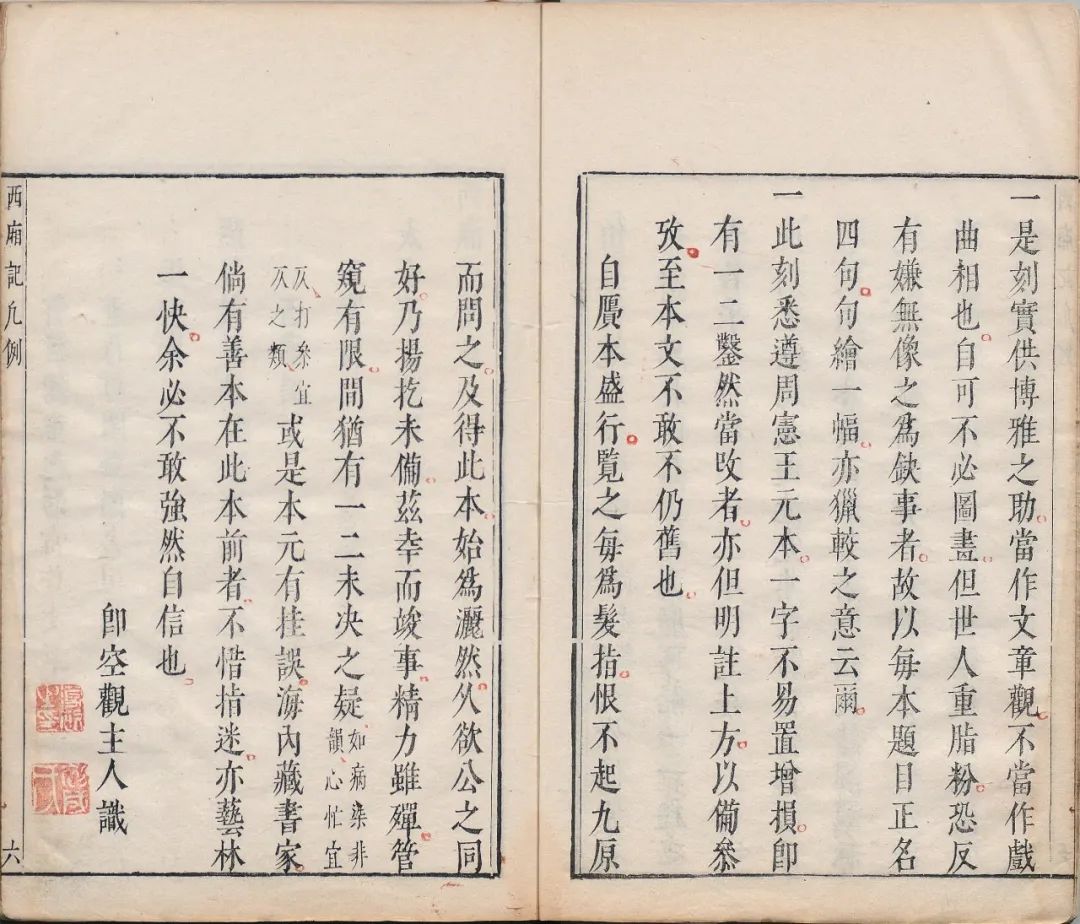 一是刻實供博雅之助當作文章觀不當作戲
曲相也自可不必圖畫但世人重脂粉恐反
有嫌無像之爲缺事者故以每本題目正名
四句句繪一幅亦獵較之意云爾
一此刻悉遵周憲王元本一字不易置增損卽
有一二鑿然當攺者亦但明註上方以備叅
攷至本文不敢不仍舊也
自贋本盛行覽之每爲髮指恨不起九原
而問之及得此本始爲灑然久欲公之同
好乃揚扢未備茲幸而竣事精力雖殫管
窺有限間猶有一二未决之疑如病染非
韻心忙宜
仄打叅宜
仄之類
或是本元有挂誤海內藏書家
倘有善本在此本前者不惜指迷亦藝林
一快余必不敢強然自信也
卽空觀主人識
西廂記凡例
六